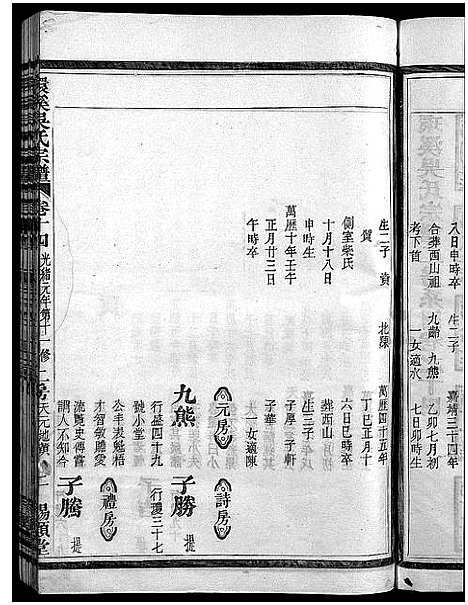 八日申時卒 生二子 嘉靖三十四年
合葬西山祖 九齡 九熊 乙卯七月初
考下首 一女適水 七日卯時生
生二子 資 北陳 萬歷四十五年
賀 丁巳正月十
側室柴氏 六日巳時卒
十月十八日 葬西山
申時生 生三子
萬歷十年壬午 子厚 子軒
正月廿三日 子華
午時卒 一女適陳
元房 詩房
九熊 子勝 提
行盛四十九 行稷三十七
號小堂
公丰裁魁梧 禮房
才智敏贍爰
流覽史傳當
謂人不知分 子騰 提
環溪吳氏宗譜 卷十四 光緒元年第十一修 陽順堂